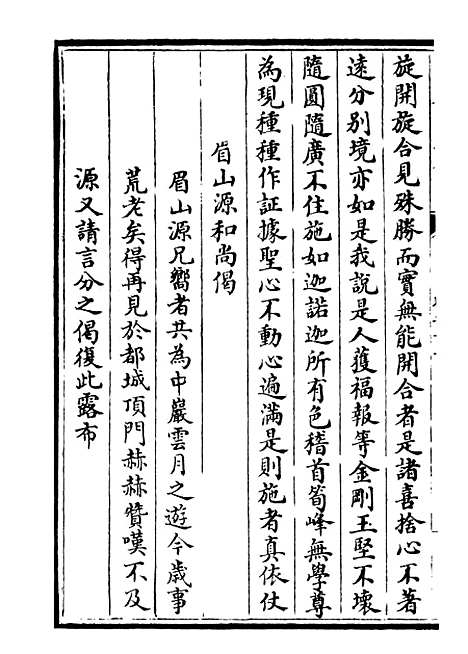 旋開旋合見殊勝而實無能開合者是諸喜捨心不著
遠分別境亦如是我說是人獲福報等金剛玉堅不壞
隨圓隨廣不住施如迦諾迦所有色稽首筍峰無學尊
為現種種作証據聖心不動心遍滿是則施者真依仗
眉山源和尚偈
眉山源兄嚮者共為中巖雲月之遊今歲事
荒老矣得再見於都城頂門赫赫贊嘆不及
源又請言分之偈復此露布